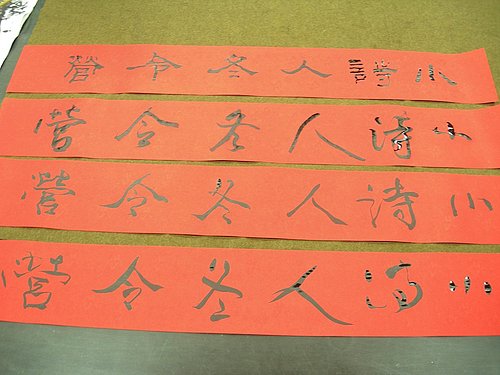 小詩人冬令營
小詩人冬令營
小詩人冬令營
小詩人冬令營